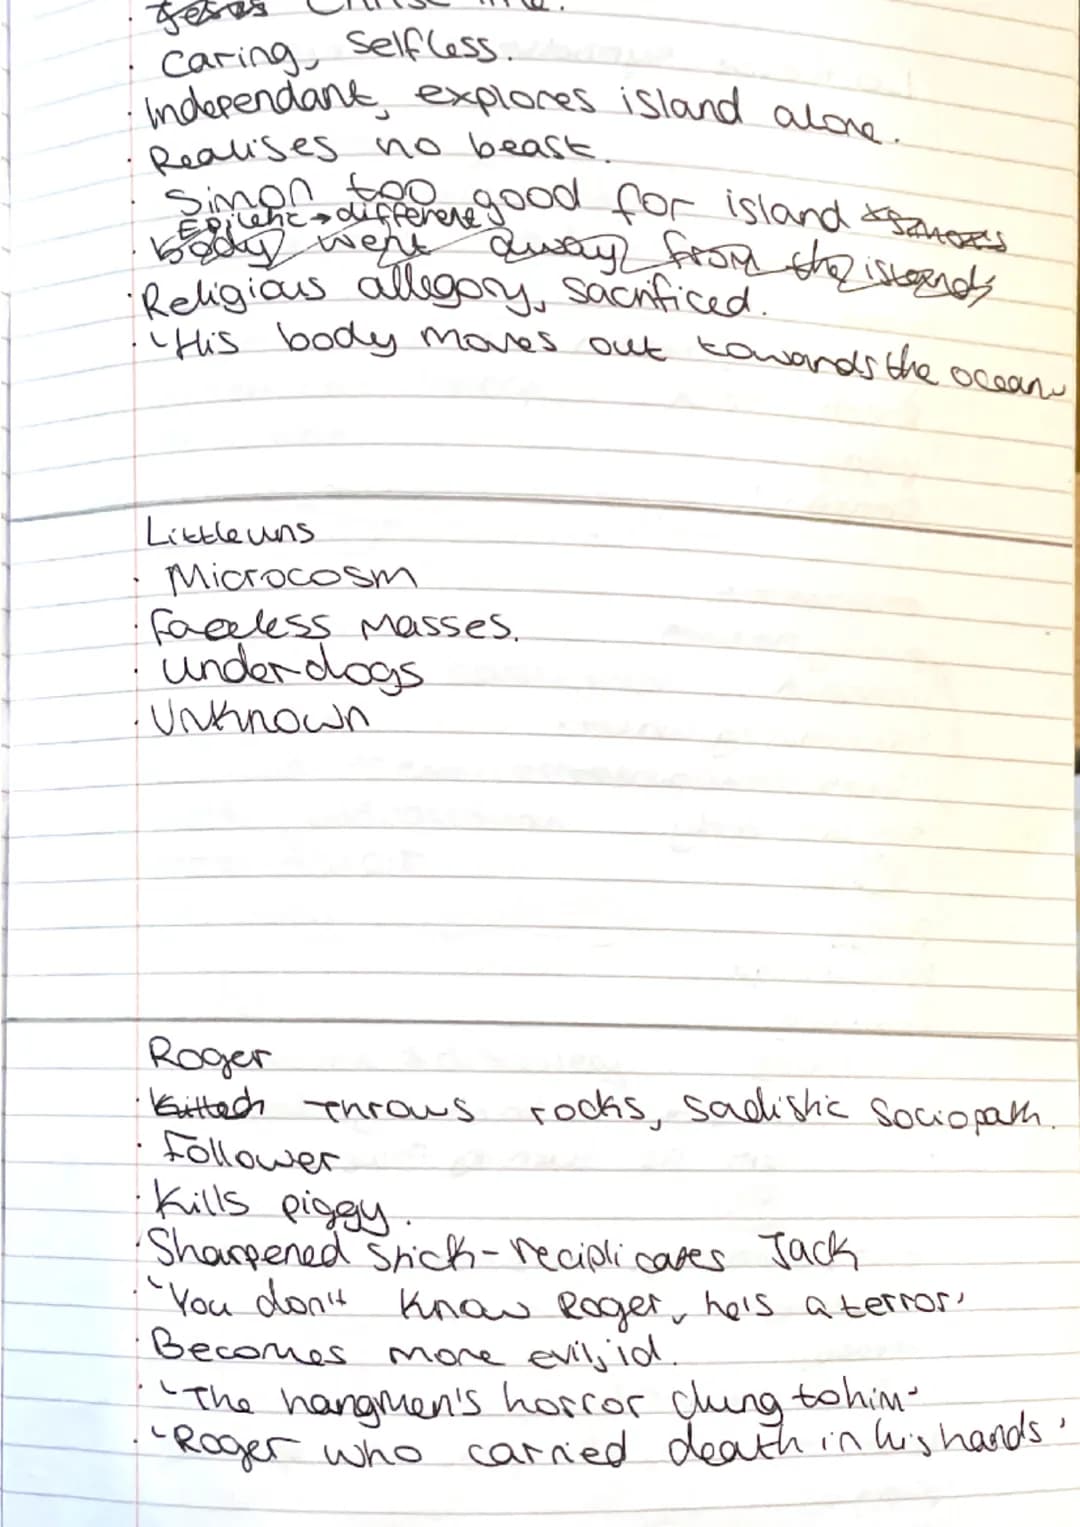 Jesus Christ like.
· Caring, Selfless.
· Independant, explores island alone.
· Realises no beast.
Simon too good for island
Epileptic → differene
· body went away from the islands
· Religious allegory, sacrificed.
· 'His body moves out towards the ocean
Littleuns
· Microcosm
· faceless Masses.
· underdogs
· Unknown
Roger
· Killed Throws rocks, sadistic Sociopath.
· Follower
· Kills piggy.
· Sharpened Stick - reciplicates Jack
· 'You don't know Roger, he's a terror'
· Becomes more evil, id.
· 'The hangmen's horror clung to him'
· 'Roger who carried death in his hands'